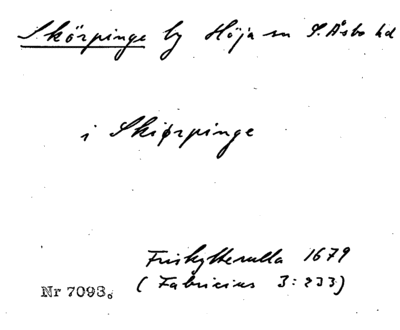 Skörpinge by Höja sn S. Åsbo hd
i Skiørpinge
Friskytterulla 1679
(Fabricius 3:233)
Nr 7093.